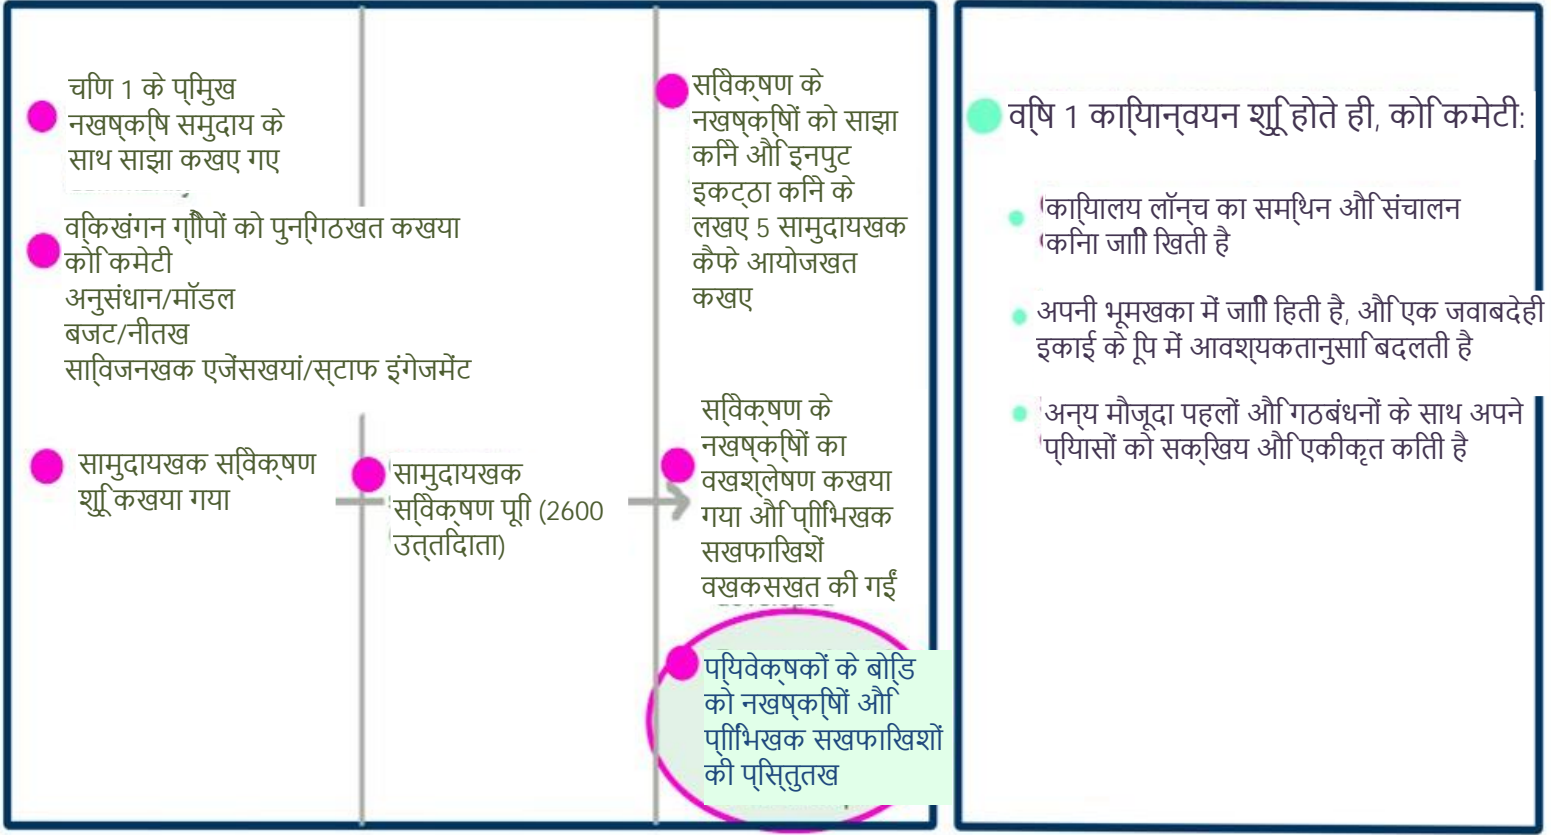 चिण 1 के प्िमुख
नखष्कि्ष समुदाय के
साथ साझा कखए गए
वि्कखंगन ग्िौपों को पुनि्गठखत कखया
कोि कमेटी
अनुसंधान/मॉडल
बजट/नीतख
साि्वजनखक एजेंसखयां/स्टाफ इंगेजमेंट
सामुदायखक सवि्ेक्षण
शिुू कखया गया
सामुदायखक
सवि्ेक्षण पूिा (2600
उत्तिदाता)
सवि्ेक्षण के
नखष्कि्षों को साझा
किने औि इनपुट
इकट्ठा किने के
लखए 5 सामुदायखक
कैफे आयोजखत
कखए
सवि्ेक्षण के
नखष्कि्षों का
वखश्लेषण कखया
गया औि प्िािंभखक
सखफाखिशें
वखकसखत की गईं
पि्यवेक्षकों के बोि्ड
को नखष्कि्षों औि
प्िािंभखक सखफाखिशों
की प्िस्तुतख
वि्ष 1 काि्यान्वयन शिुू होते ही, कोि कमेटी:
काि्यालय लॉन्च का समि्थन औि संचालन
किना जािी िखती है
अपनी भूमखका में जािी िहती है, औि एक जवाबदेही
इकाई के िूप में आवश्यकतानुसाि बदलती है
अन्य मौजूदा पहलों औि गठबंधनों के साथ अपने
प्ियासों को सक्िखय औि एकीकृत किती है